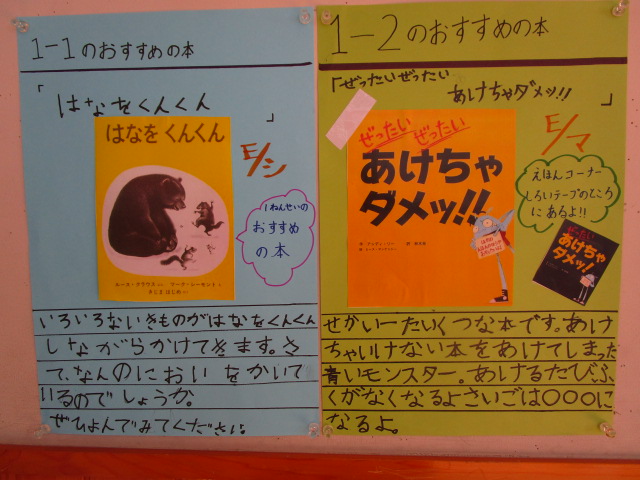 1-1のおすすめの本
「はなをくんくん」
はなを くんくん
E/シ
1ねんせいの
おすすめ
の本
ルース・クラウス ぶん マーク・シーモント え
きじま はじめ やく
いろいろないきものがはなをくんくん
しながらかけてきます。さ
て、なんのにおいをかいて
いるのでしょうか。
ぜひよんでみてください。
1-2のおすすめの本
「ぜったいぜったい
あけちゃダメッ!!」
ぜったい ぜったい
あけちゃ
ダメッ!!
E/マ
えほんコーナー
しろいテープのところ
にあるよ!!
ぜったい
あけちゃ
ダメッ!
せかい一たいくつな本です。あけ
ちゃいけない本をあけてしまった
青いモンスター。あけるたびふ
くがなくなるよさいごは〇〇〇に
なるよ。